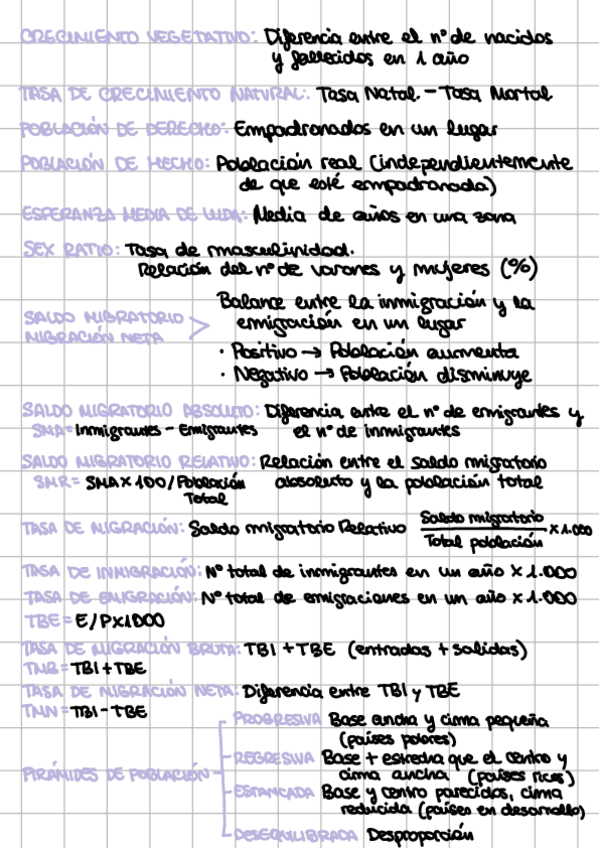 CRECIMIENTO VEGETATIVO: Diferencia entre el nº de nacidos
y fallecidos en 1 año
TASA DE CRECIMIENTO NATURAL: Tasa Natal. - Tasa Mortal
POBLACIÓN DE DERECHO: Empadronados en un lugar
POBLACIÓN DE HECHO: Población real (independientemente
de que esté empadronada)
ESPERANZA MEDIA DE VIDA: Media de años en una zona
SEX RATIO: Tasa de masculinidad.
Relación del nº de varones y mujeres (%)
SALDO MIGRATORIO
MIGRACIÓN NETA
Balance entre la inmigración y la
emigración en un lugar
· Positivo → Población aumenta
· Negativo → Población disminuye
SALDO MIGRATORIO ABSOLUTO: Diferencia entre el nº de emigrantes y
SMA = Inmigrantes - Emigrantes el nº de inmigrantes
SALDO MIGRATORIO RELATIVO: Relación entre el saldo migratorio
SMR = SMA x 100 / Población absoluto y la población total
Total
TASA DE MIGRACIÓN: Saldo migratorio Relativo Saldo migratorio x 1.000
Total población
TASA DE INMIGRACIÓN: Nº total de inmigrantes en un año x 1.000
TASA DE EMIGRACIÓN: Nº total de emigraciones en un año x 1.000
TBE = E/P x 1000
TASA DE MIGRACIÓN BRUTA: TBI + TBE (entradas + salidas)
TMB = TBI + TBE
TASA DE MIGRACIÓN NETA: Diferencia entre TBI y TBE
TMN = TBI - TBE
PIRÁMIDES DE POBLACIÓN
PROGRESIVA Base ancha y cima pequeña
(países pobres)
REGRESIVA Base + estrecha que el centro y
cima ancha (países ricos)
ESTANCADA Base y centro parecidos, cima
reducida (países en desarrollo)
DESEQUILIBRADA Desproporción